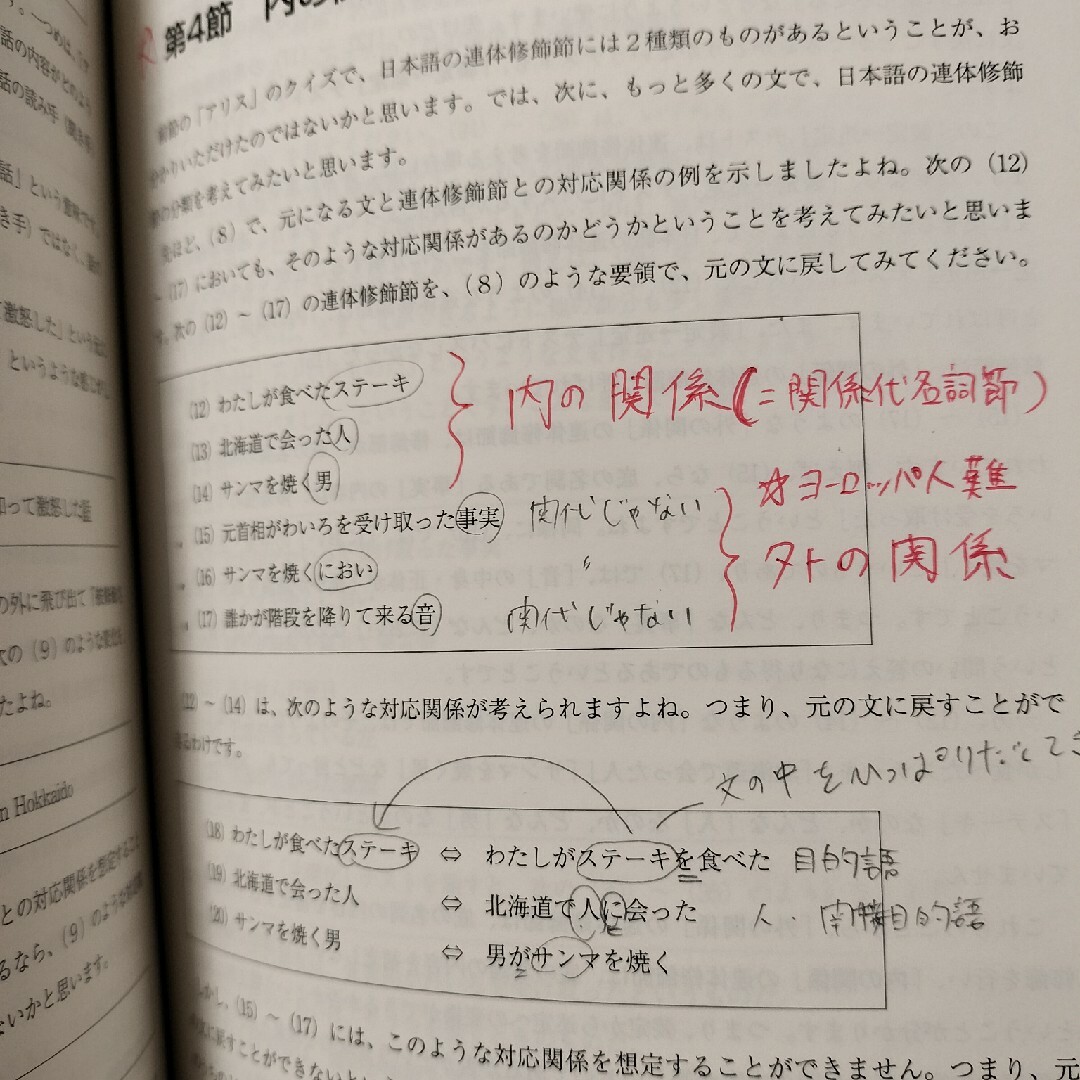 第4節 内の
前節の「アリス」のクイズで、日本語の連体修飾節には2種類のものがあるということが、お
わかりいただけたのではないかと思います。では、次に、もっと多くの文で、日本語の連体修飾
節の分類を考えてみたいと思います。
先ほど、(8)で、元になる文と連体修飾節との対応関係の例を示しましたよね。次の(12)
~(17)においても、そのような対応関係があるのかどうかということを考えてみたいと思いま
す。次の(12)~(17)の連体修飾節を、(8)のような要領で、元の文に戻してみてください。
(12) わたしが食べたステーキ
(13) 北海道で会った人
(14) サンマを焼く男
内の関係(=関係代名詞節)
(15) 元首相がわいろを受け取った事実 関代じゃない
(16) サンマを焼くにおい 〃
(17) 誰かが階段を降りて来る音 関代じゃない
☆ヨーロッパ人難
外の関係
(12)~(14)は、次のような対応関係が考えられますよね。つまり、元の文に戻すことがで
きるわけです。
文の中をひっぱりだしてき
(18) わたしが食べたステーキ ⇔ わたしがステーキを食べた 目的語
(19) 北海道で会った人 ⇔ 北海道で人に会った 人 間接目的語
(20) サンマを焼く男 ⇔ 男がサンマを焼く
しかし、(15)~(17)には、このような対応関係を想定することができません。つまり、元
の文に戻すことができないと
話の内容がどのよう
話の読み手(聞き手)
話」という意味です。
き手)ではなく、
激怒した」という
というような感じが
知って激怒した
の外に飛び出て「
次の(9)のような
たよね。
n Hokkaido
との対応関係を想定すること
るなら、(9)のような
ないかと思います。